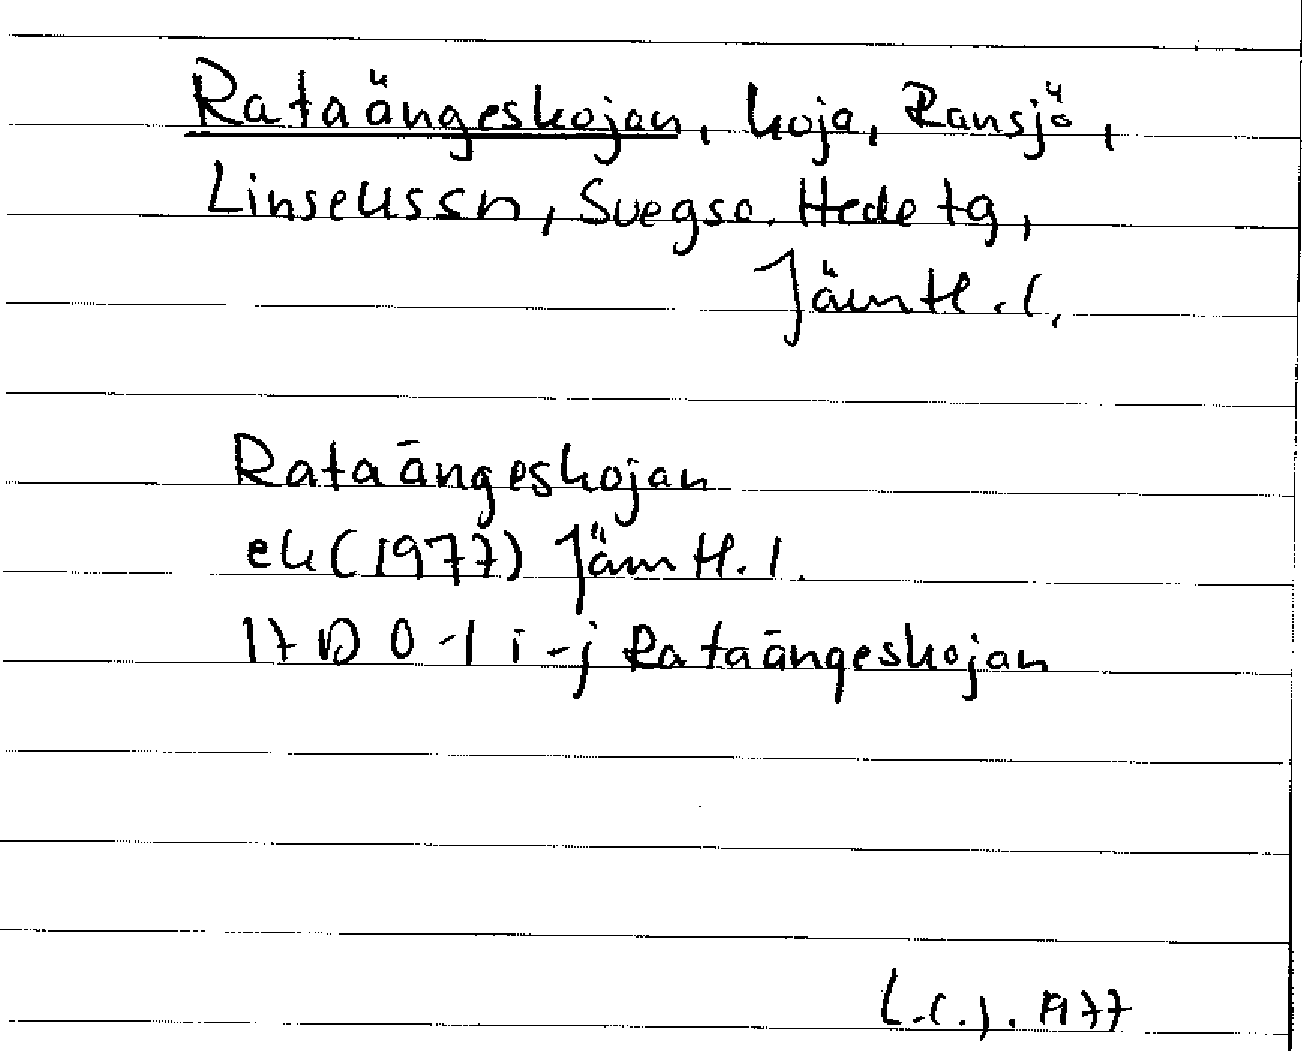 Rataängeskojan, koja, Ransjö,
Linsells sn, Svegs o. Hede tg,
Jämtl. l.
Rataängeskojan
ek (1977) Jämtl. l.
17D 0-1 i-j Rataängeskojan
1977